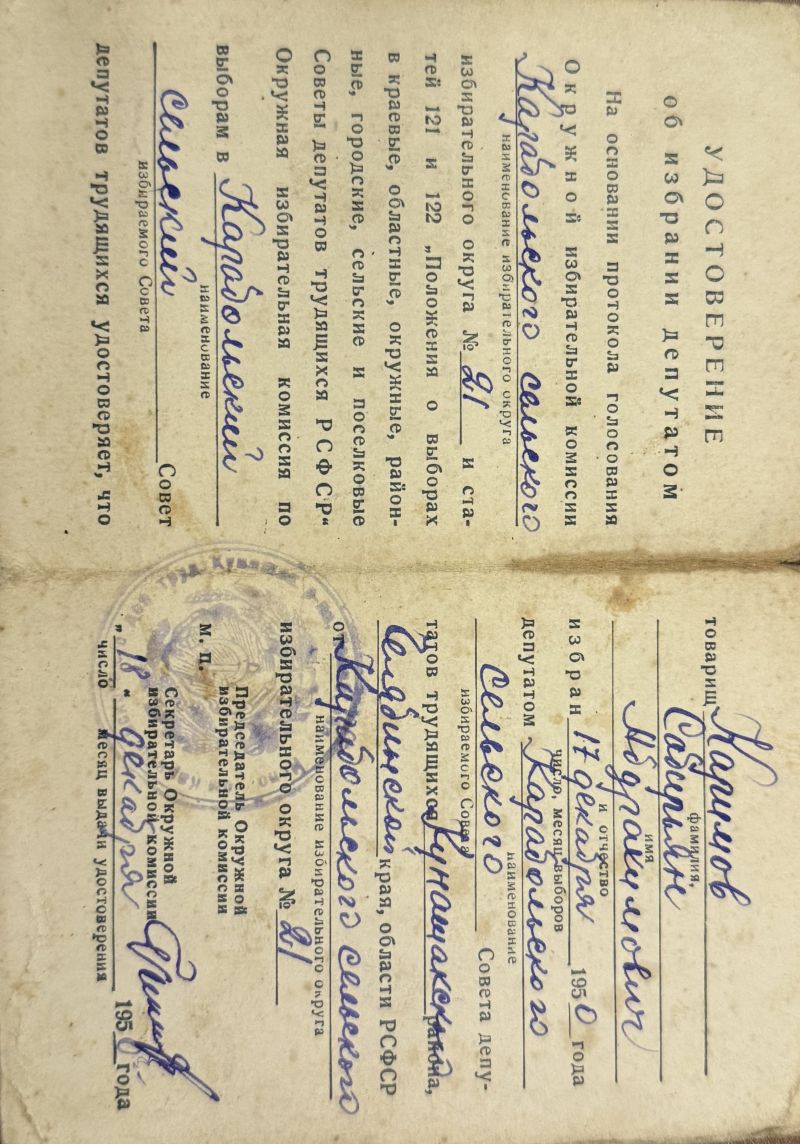 УДОСТОВЕРЕНИЕ
об избрании депутатом
На основании протокола голосования
Окружной избирательной комиссии
Карабольского сельского
наименование избирательного округа
избирательного округа № 21 и ста-
тей 121 и 122 „Положения о выборах
в краевые, областные, окружные, район-
ные, городские, сельские и поселковые
Советы депутатов трудящихся РСФСР“
Окружная избирательная комиссия по
выборам в Карабольский
наименование
сельский Совет
избираемого Совета
депутатов трудящихся удостоверяет, что
товарищ Каримов
фамилия,
Сабирьян
имя
Абдрахимович
и отчество
избран 17 декабря 1950 года
число, месяц выборов
депутатом Карабольского
наименование
сельского Совета депу-
избираемого Совета
татов трудящихся Кунашакского района,
Челябинской края, области РСФСР
от Карабольского сельского
наименование избирательного округа
избирательного округа № 21
Председатель Окружной
м. п. избирательной комиссии
Секретарь Окружной
избирательной комиссии
„18“ декабря 1950 года
число месяц выдачи удостоверения